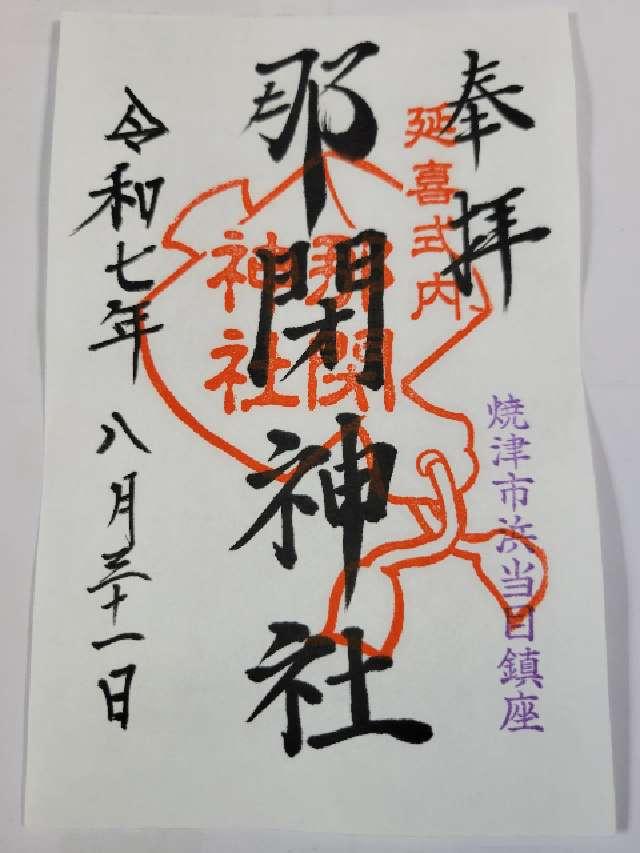 奉拝
延喜式内
焼津市浜当目鎮座
那閇神社
那閇神社
令和七年八月三十一日